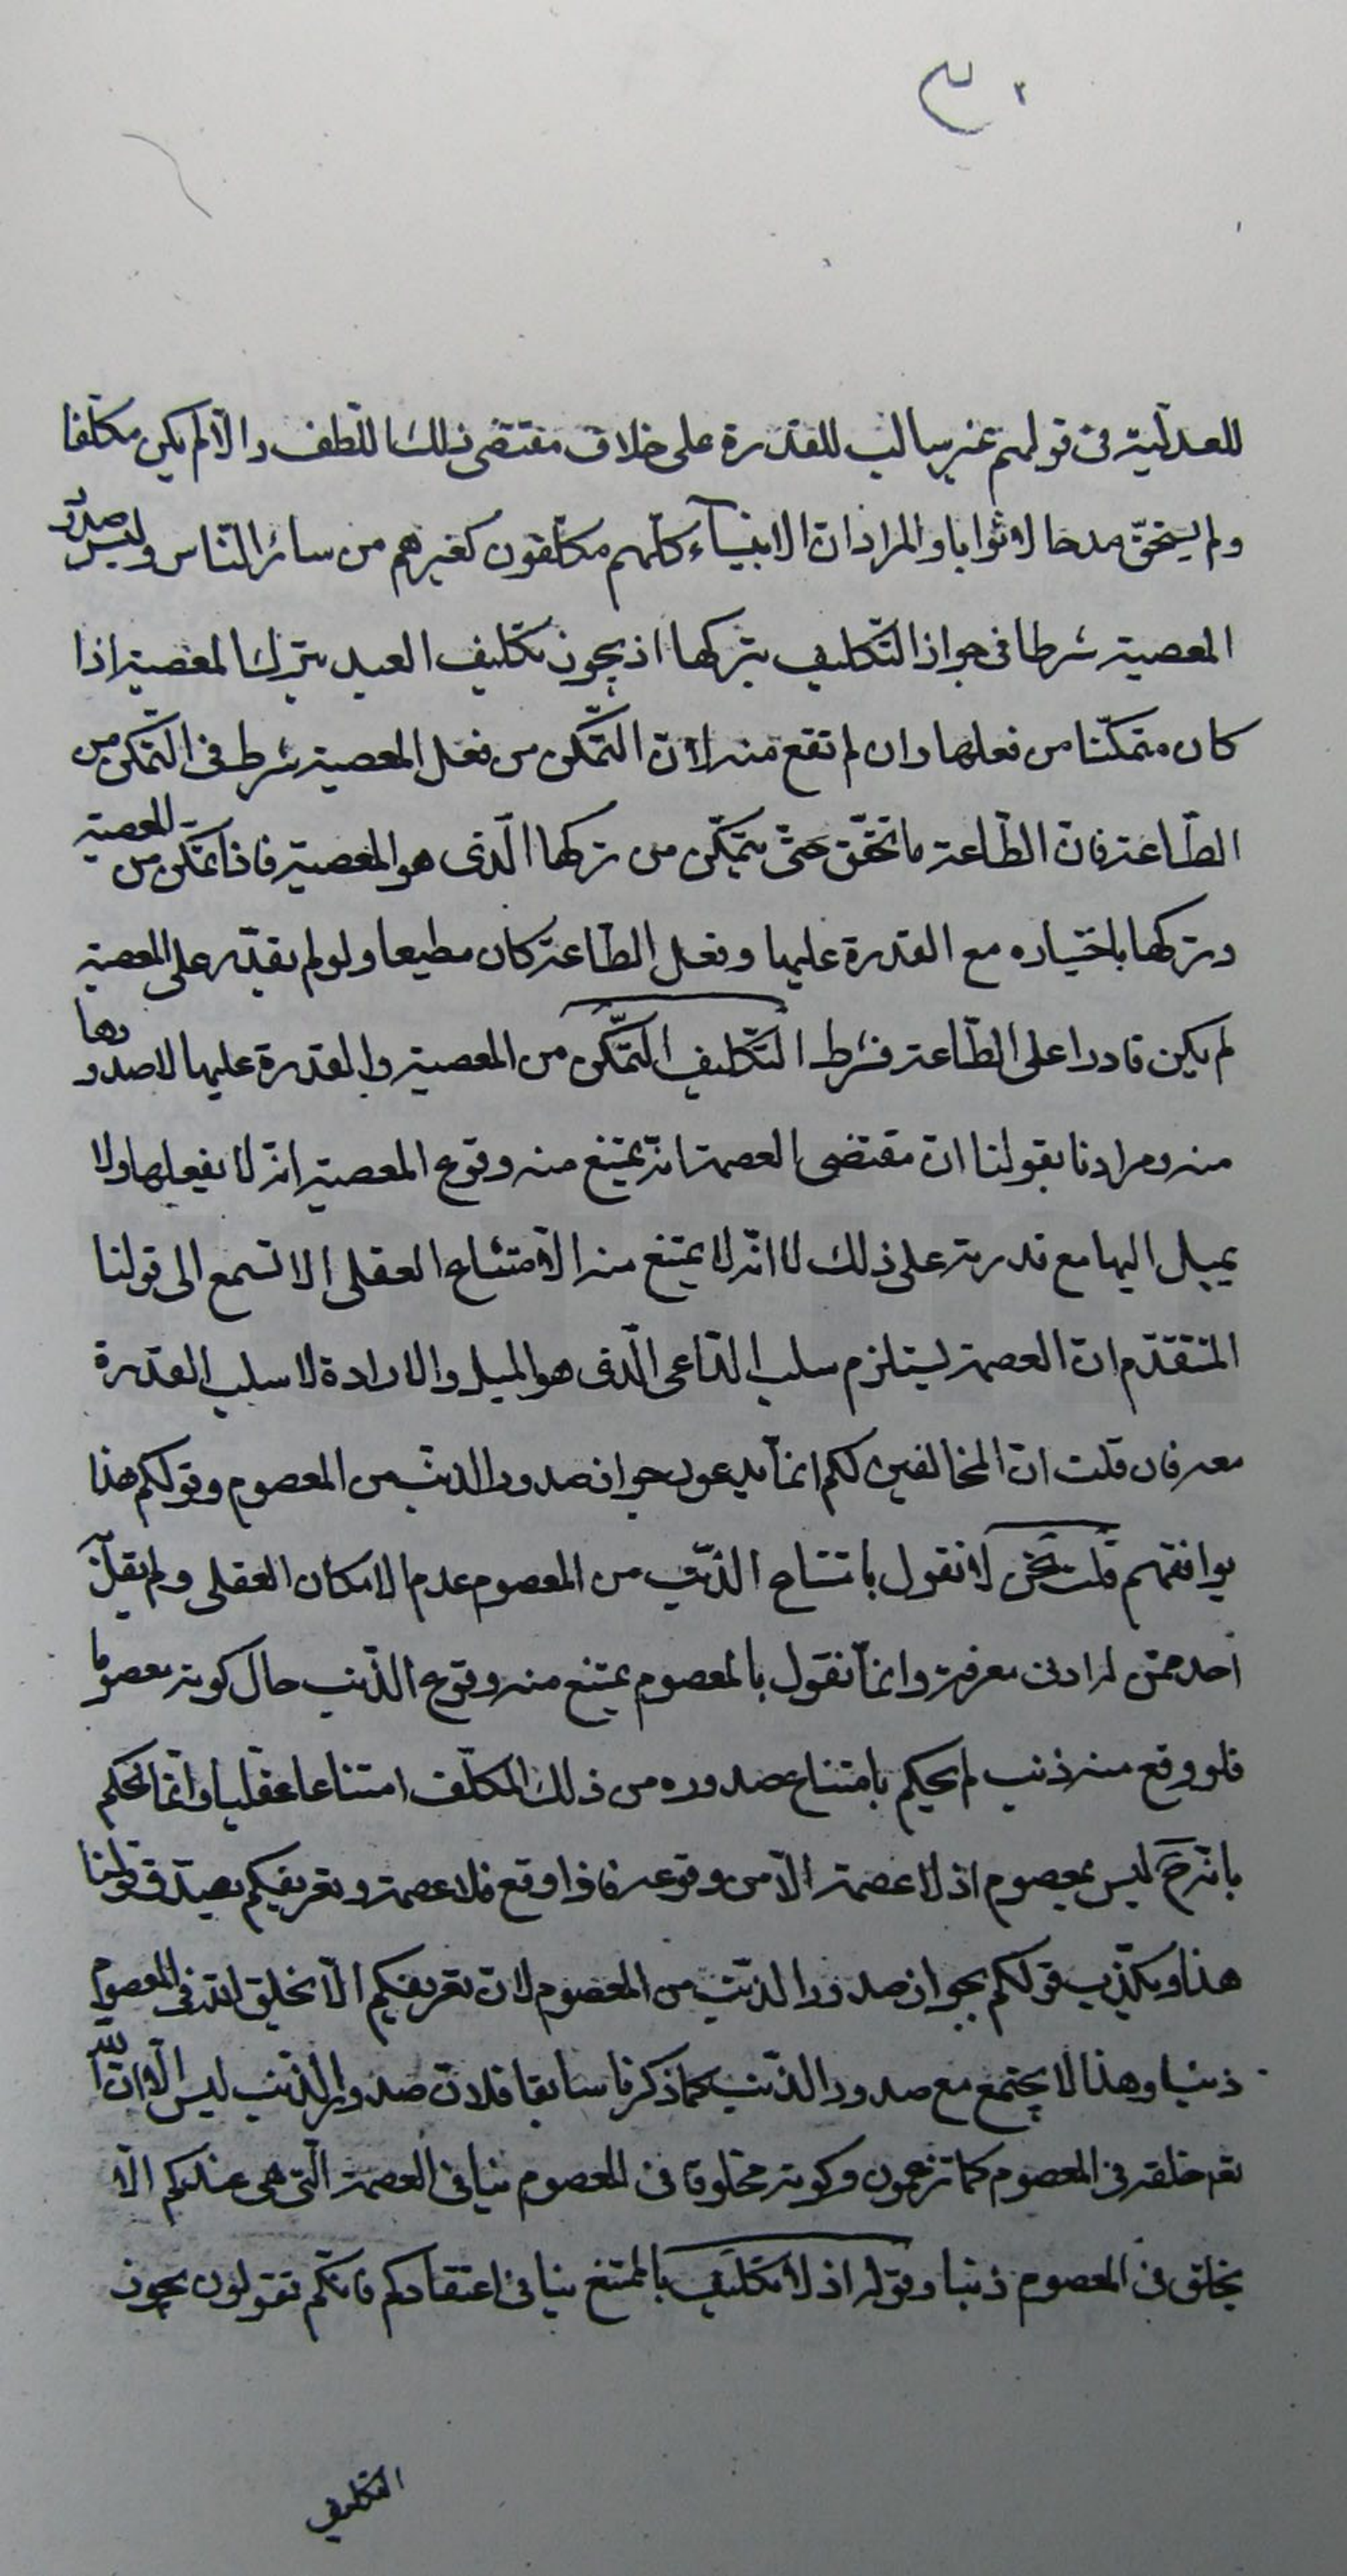 للعدليّة في قولهم غير سالب للقدرة على خلاف مقتضى ذلك اللّطف والّا لم يكن مكلّفا
ولم يستحقّ مدحا ولا ثوابا والمراد انّ الانبيآء كلّهم مكلّفون كغيرهم من سائر النّاس وليس صدور
المعصية شرطا في جواز التّكليف بتركها اذ يجوز تكليف العبد بترك المعصية اذا
كان متمكّنا من فعلها وان لم تقع منه لانّ التّمكّن من فعل المعصية شرط في التّمكّن من
الطّاعة فانّ الطّاعة ما تحقّق حتّى يتمكّن من تركها الّذى هو المعصية فاذا تمكّن من المعصية
وتركها باختياره مع القدرة عليها وفعل الطّاعة كان مطيعا ولو لم يقدر على المعصية
لم يكن قادرا على الطّاعة فشرط التّكليف التّمكّن من المعصية والقدرة عليها لا صدورها
منه ومرادنا بقولنا انّ مقتضى العصمة انّه يمتنع منه وقوع المعصية انّه لا يفعلها ولا
يميل اليها مع قدرته على ذلك لا انّه لا يمتنع منه الّا متناع العقلى الا تسمع الى قولنا
المتقدّم انّ العصمة يستلزم سلب الدّاعى الّذى هو الميل والارادة لا سلب القدرة
معه فان قلت انّ المخالفين لكم انمّا يدعون جواز صدور الذنب من المعصوم وقولكم هذا
يوافقهم قلت نحن لا نقول بامتناع الذّنب من المعصوم عدم الامكان العقلى ولم يقل به
احد ممّن له ادنى معرفة وانمّا نقول بالمعصوم يمتنع منه وقوع الذّنب حال كونه معصوما
فلو وقع منه ذنب لم يحكم بامتناع صدوره من ذلك المكلّف امتناعا عقليا وانّما نحكم
بانّه ح ليس بمعصوم اذ لا عصمة الّا من وقوعه فاذا وقع فلا عصمة وتعريفكم يصدّق قولنا
هذا ويكذّب قولكم بجواز صدور الذّنب من المعصوم لانّ تعريفكم الّا يخلق اللّه في المعصوم
ذنبا وهذا لا يجتمع مع صدور الذّنب كما ذكرنا سابقا فلانّ صدور الذّنب ليس الّا انّ اللّه
تعم خلقه في المعصوم كما تزعمون وكونه مخلوقا في المعصوم ينافى العصمة الّتى هي عندكم الّا
يخلق في المعصوم ذنبا وقوله اذ لا تكليف بالممتنع ينافى اعتقادكم فانّكم تقولون يجوز
التكليف